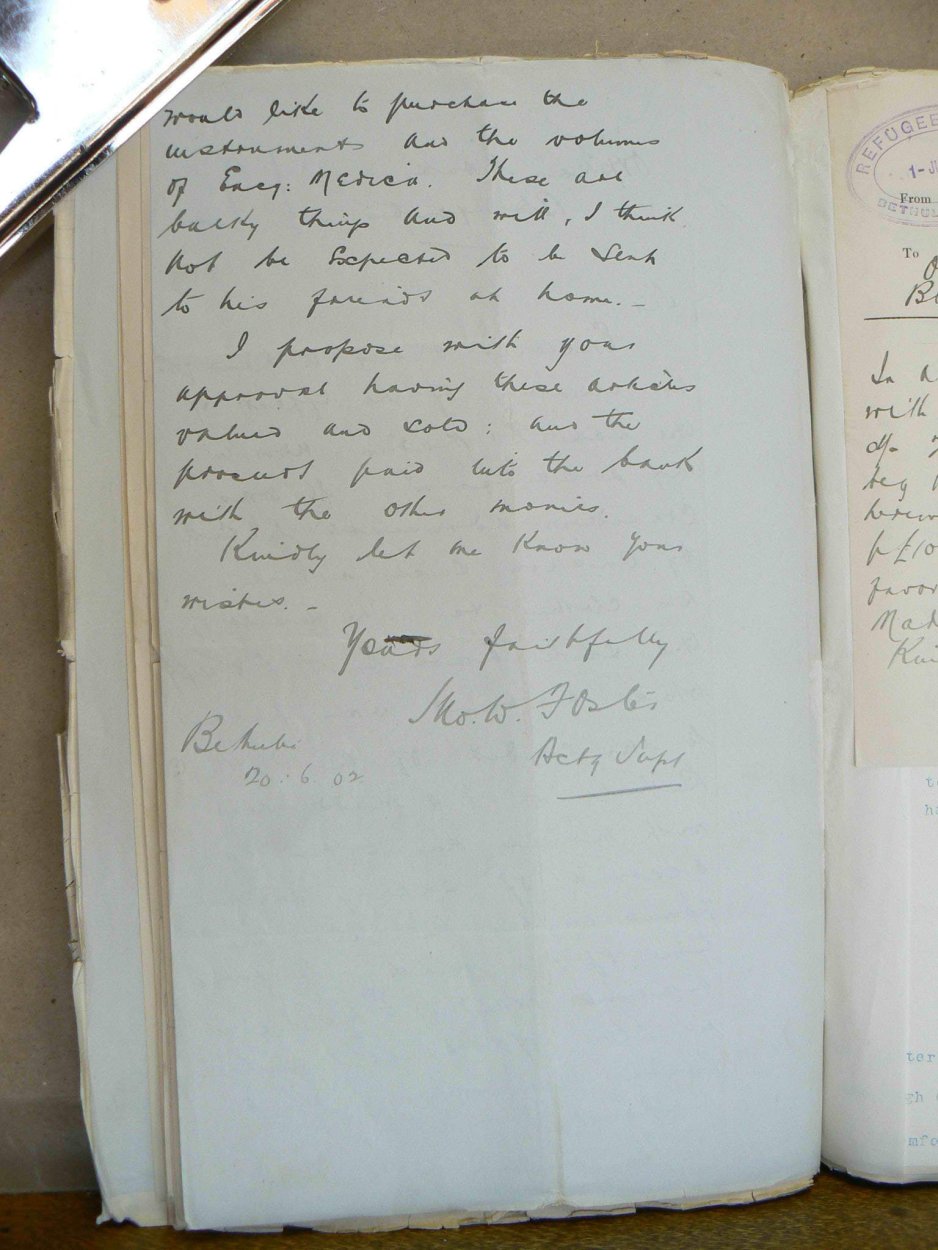 would like to purchase the
instruments and the volumes
of Ency: Medica. These are
bulky things and will, I think
not be Expected to be sent
to his friends at home. -
I propose with your
approval having these articles
valued and sold: and the
proceeds paid into the bank
with the other monies.
Kindly let me know your
wishes. -
Yours faithfully
W. Foster
Actg Supt
Bethulie
20.6.02
REFUGEE
1-J
BETHUL
From
To
In
with
beg
herew
p £10
favor
Mad
Kin
ter
gh
mfo